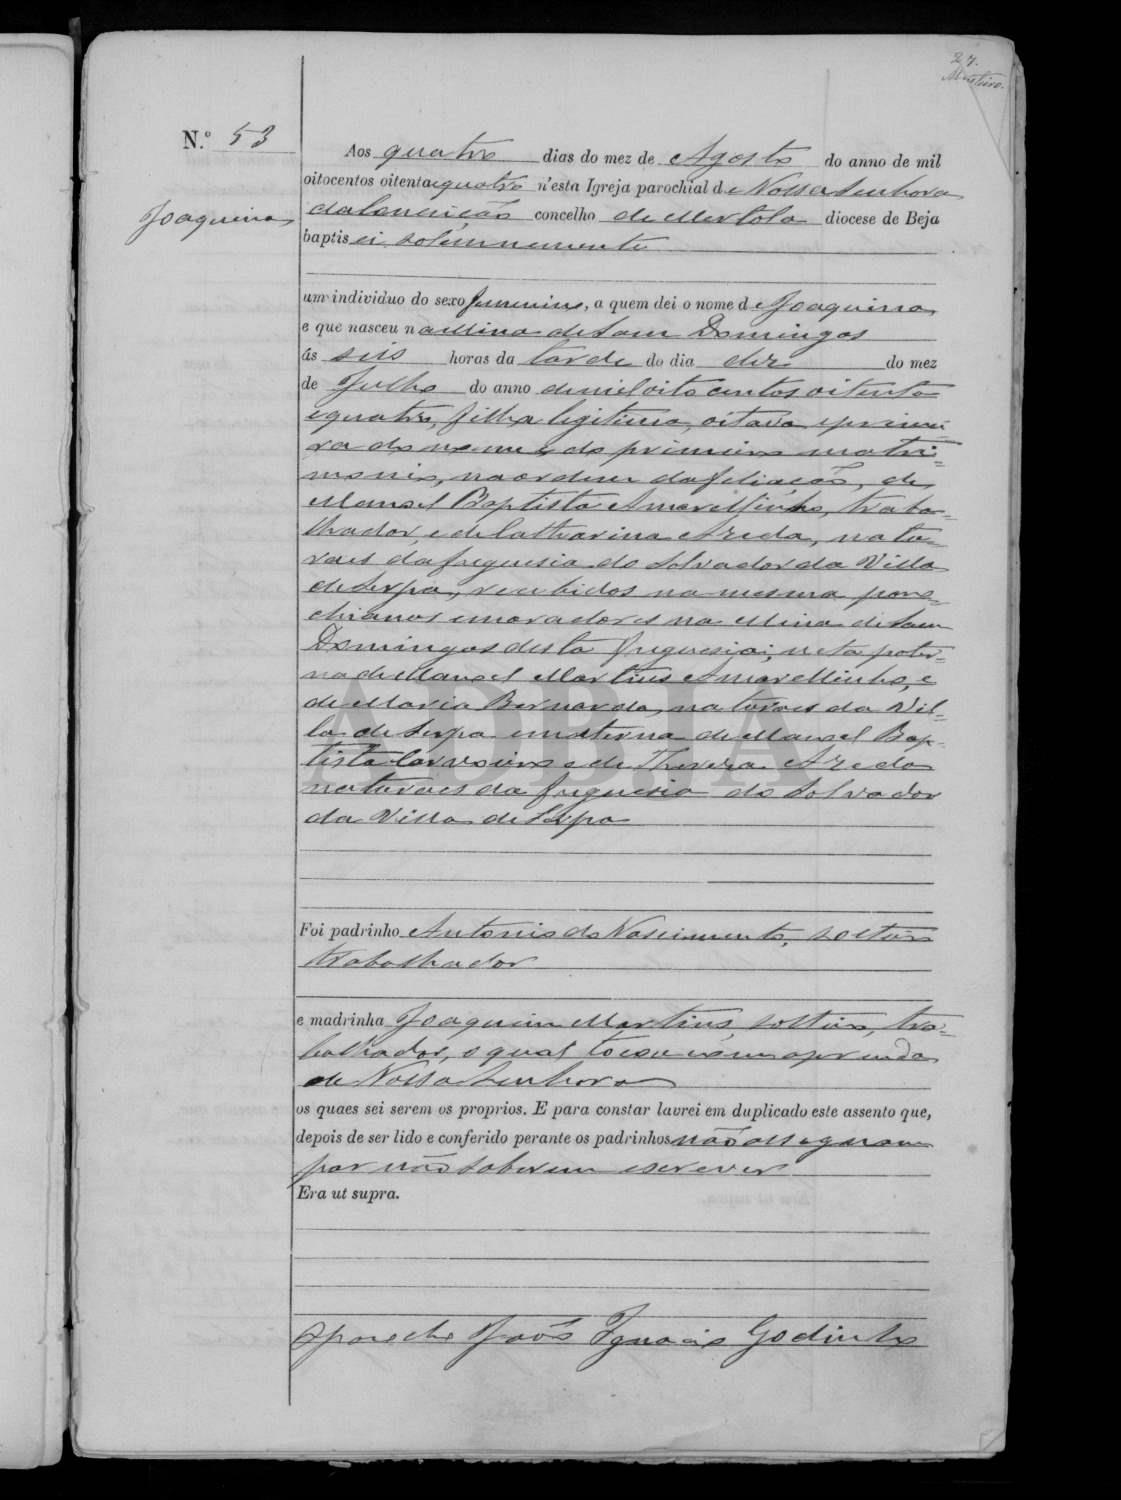 27.
N.º 53
Joaquina
Aos quatro dias do mez de Agosto do anno de mil
oitocentos oitenta e quatro n'esta Igreja parochial de Nossa Senhora
da Conceição concelho de Mertola diocese de Beja
baptisei solemnemente
um individuo do sexo femenino, a quem dei o nome de Joaquina
e que nasceu na Mina de Sam Domingos
ás seis horas da tarde do dia dez do mez
de Julho do anno de mil oito centos oitenta
e quatro, filha legitima, oitava e primei
ra do nome e do primeiro matri=
monio, na ordem da filiação, de
Manoel Baptista Amarellinho, traba=
lhador, e de Catharina Azeda, natu=
raes da freguesia do Salvador da Villa
de Serpa, recebidos na mesma, paro=
chianos e moradores na Mina de Sam
Domingos desta freguesia; neta pater=
na de Manoel Martins Amarellinho, e
de Maria Bernarda, naturaes da Vil=
la de Serpa e materna de Manoel Bap=
tista Carvoeiro e de Thereza Azeda
naturaes da freguesia do Salvador
da Villa de Serpa
ADBJA
Foi padrinho Antonio do Nascimento, solteiro
trabalhador
e madrinha Joaquim Martins, solteiro, tra=
balhador, o qual tocou com a prenda
de Nossa Senhora
os quaes sei serem os proprios. E para constar lavrei em duplicado este assento que,
depois de ser lido e conferido perante os padrinhos não assignam
por não saberem escrever
Era ut supra.
O parocho João Ignacio Godinho